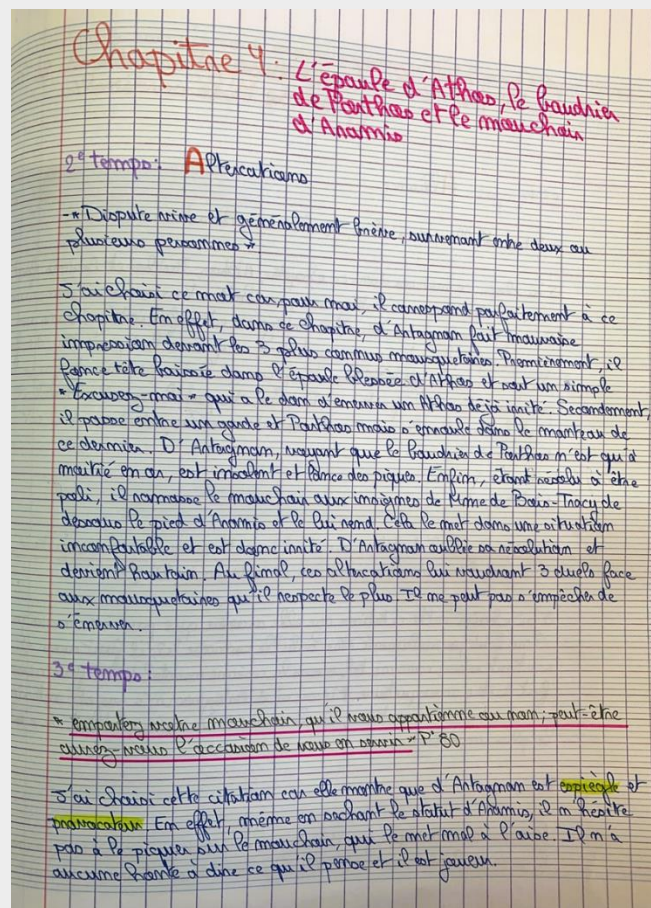 Chapitre 4: L'épaule d'Athos, le baudrier
de Porthos et le mouchoir
d'Aramis
2e temps: Altercations
-« Dispute vive et généralement brève, survenant entre deux ou
plusieurs personnes »
J'ai choisi ce mot car, pour moi, il correspond parfaitement à ce
chapitre. En effet, dans ce chapitre, d'Artagnan fait mauvaise
impression devant les 3 plus connus mousquetaires. Premièrement, il
fonce tête baissée dans l'épaule blessée d'Athos et vaut un simple
« Excusez-moi » qui a le don d'énerver un Athos déjà irrité. Secondement,
il passe entre un garde et Porthos mais s'enroule dans le manteau de
ce dernier. D'Artagnan, voyant que le baudrier de Porthos n'est qu'à
moitié en or, est insolent et lance des piques. Enfin, étant résolu à être
poli, il ramasse le mouchoir aux insignes de Mme de Bois-Tracy de
dessous le pied d'Aramis et le lui rend. Cela le met dans une situation
inconfortable et est donc irrité. D'Artagnan oublie sa résolution et
devient hautain. Au final, ces altercations lui vaudront 3 duels face
aux mousquetaires qu'il respecte le plus. Il ne peut pas s'empêcher de
s'énerver.
3e temps:
« emportez votre mouchoir, qu'il vous appartienne ou non; peut-être
aurez-vous l'occasion de vous en servir » P°80
J'ai choisi cette citation car elle montre que d'Artagnan est espiègle et
provocateur. En effet, même en sachant le statut d'Aramis, il n'hésite
pas à le piquer sur le mouchoir, qui le met mal à l'aise. Il n'a
aucune honte à dire ce qu'il pense et il est joueur.